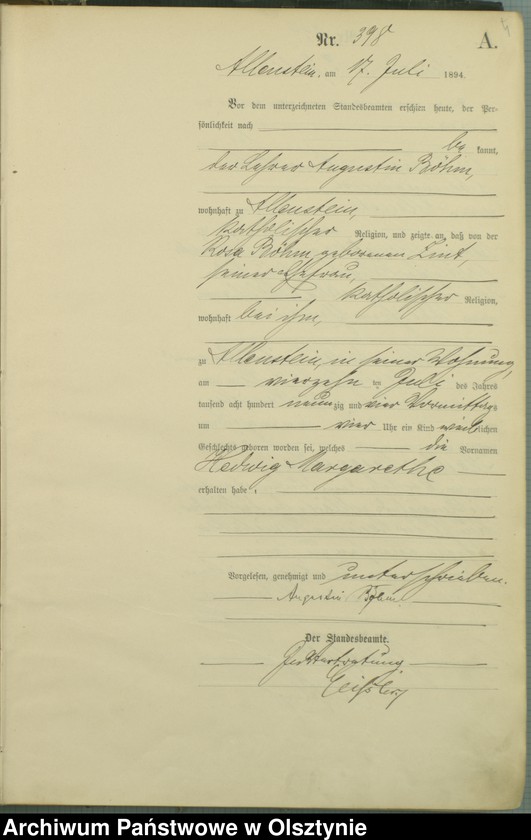 Nr. 398 A.
Allenstein, am 17. Juli 1894.
Vor dem unterzeichneten Standesbeamten erschien heute, der Per-
sönlichkeit nach
be kannt,
der Lehrer Augustin Böhm,
wohnhaft zu Allenstein,
katholischer Religion, und zeigte an, daß von der
Rosa Böhm, geborenen Lint,
seiner Ehefrau,
katholischer Religion,
wohnhaft bei ihm,
zu Allenstein, in seiner Wohnung,
am vierzehn ten Juli des Jahres
tausend acht hundert neun zig und vier Vormittags
um vier Uhr ein Kind weib lichen
Geschlechts geboren worden sei, welches die Vornamen
Hedwig Margarethe
erhalten habe.
Vorgelesen, genehmigt und unterschrieben.
Augustin Böhm
Der Standesbeamte.
In Vertretung
Archiwum Państwowe w Olsztynie